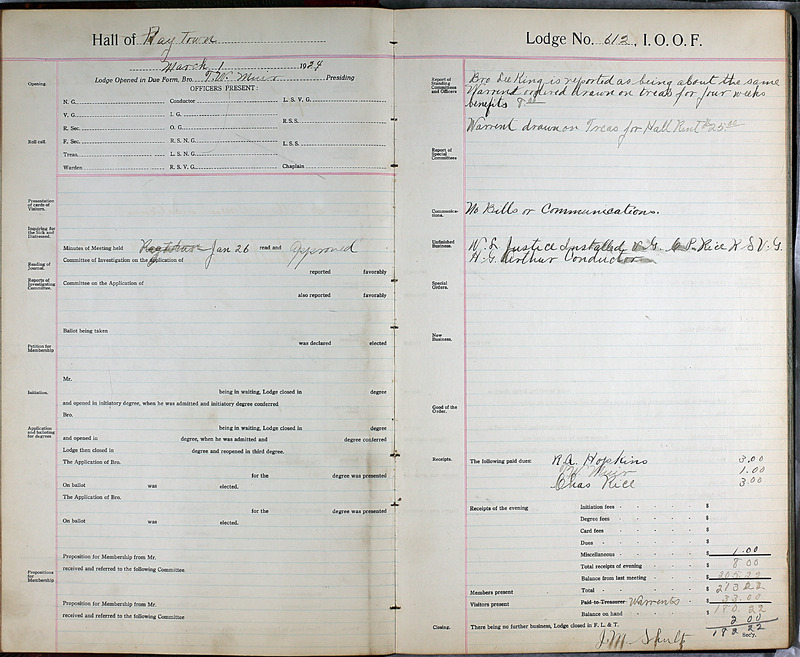 Hall of Ray Town
March 1 1924
Lodge Opened in Due Form, Bro. T. W. Muir Presiding
OFFICERS PRESENT:
Opening.
N. G. Conductor L. S. V. G.
V. G. I. G.
R. Sec. O. G. R.S.S.
Roll call. F. Sec. R. S. N. G. L. S. S.
Treas. L. S. N. G.
Warden R. S. V. G. Chaplain
Presentation of cards of Visitors.
Inquiring for the Sick and Distressed.
Minutes of Meeting held Jan 26 read and Approved
Reading of Journal.
Committee of Investigation on the Application of
reported favorably
Reports of Investigating Committee.
Committee on the Application of
also reported favorably
Ballot being taken
Petition for Membership
was declared elected
Mr.
Initiation.
being in waiting, Lodge closed in degree
and opened in initiatory degree, when he was admitted and initiatory degree conferred
Bro.
Application and balloting for degrees
being in waiting, Lodge closed in degree
and opened in degree, when he was admitted and degree conferred
Lodge then closed in degree and reopened in third degree.
The Application of Bro.
for the degree was presented
On ballot was elected.
The Application of Bro.
for the degree was presented
On ballot was elected.
Proposition for Membership from Mr.
Propositions for Membership
received and referred to the following Committee
Proposition for Membership from Mr.
received and referred to the following Committee
Lodge No. 612, I. O. O. F.
Report of Standing Committees and Officers
Bro Lee King is reported as being about the same
Warrend ordered drawn on treas for four weeks
benefits 8 00
Warrent drawn on Treas for Hall Rent $25.00
Report of Special Committees
Communications.
No Bills or Communications.
Unfinished Business.
W. L. Justice Installed V. G. C P. Rice R S V. G.
H. G. Arthur Conductor
Special Orders.
New Business.
Good of the Order.
Receipts.
The following paid dues: R. A. Hopkins 3.00
T W Muir 1.00
Chas Rice 3.00
Receipts of the evening Initiation fees $
Degree fees $
Card fees $
Dues $
Miscellaneous $ 1.00
Total receipts of evening $ 8 00
Balance from last meeting $
Members present Total $ 213 22
Visitors present Paid to Treasurer Warrents $ 33.00
Balance on hand $ 180.22
2 00
Closing. There being no further business, Lodge closed in F. L. & T. 182 22
Sec'y.